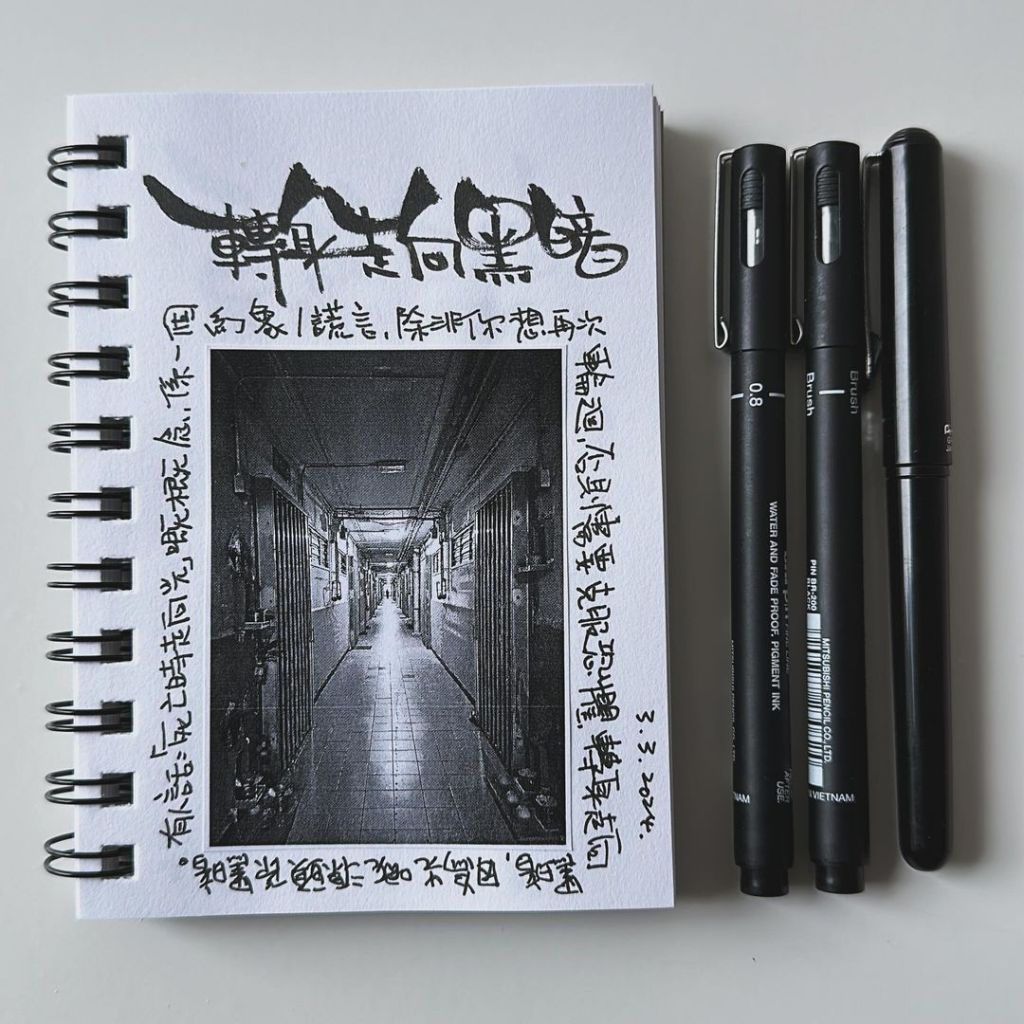 轉身走向黑暗
有人話:「死亡時走向光」嘅概念, 係一
個幻象/謊言, 除非你想再次
輪迴, 需要克服恐懼, 轉身走向
黑暗, 因為光嘅源頭係黑暗。
3.3.2024.
0.8
WATER AND FADE PROOF, PIGMENT INK
AFTER
USE.
Brush
Brush
PIN BR-200
BLACK
MITSUBISHI PENCIL CO. LTD.
VIETNAM